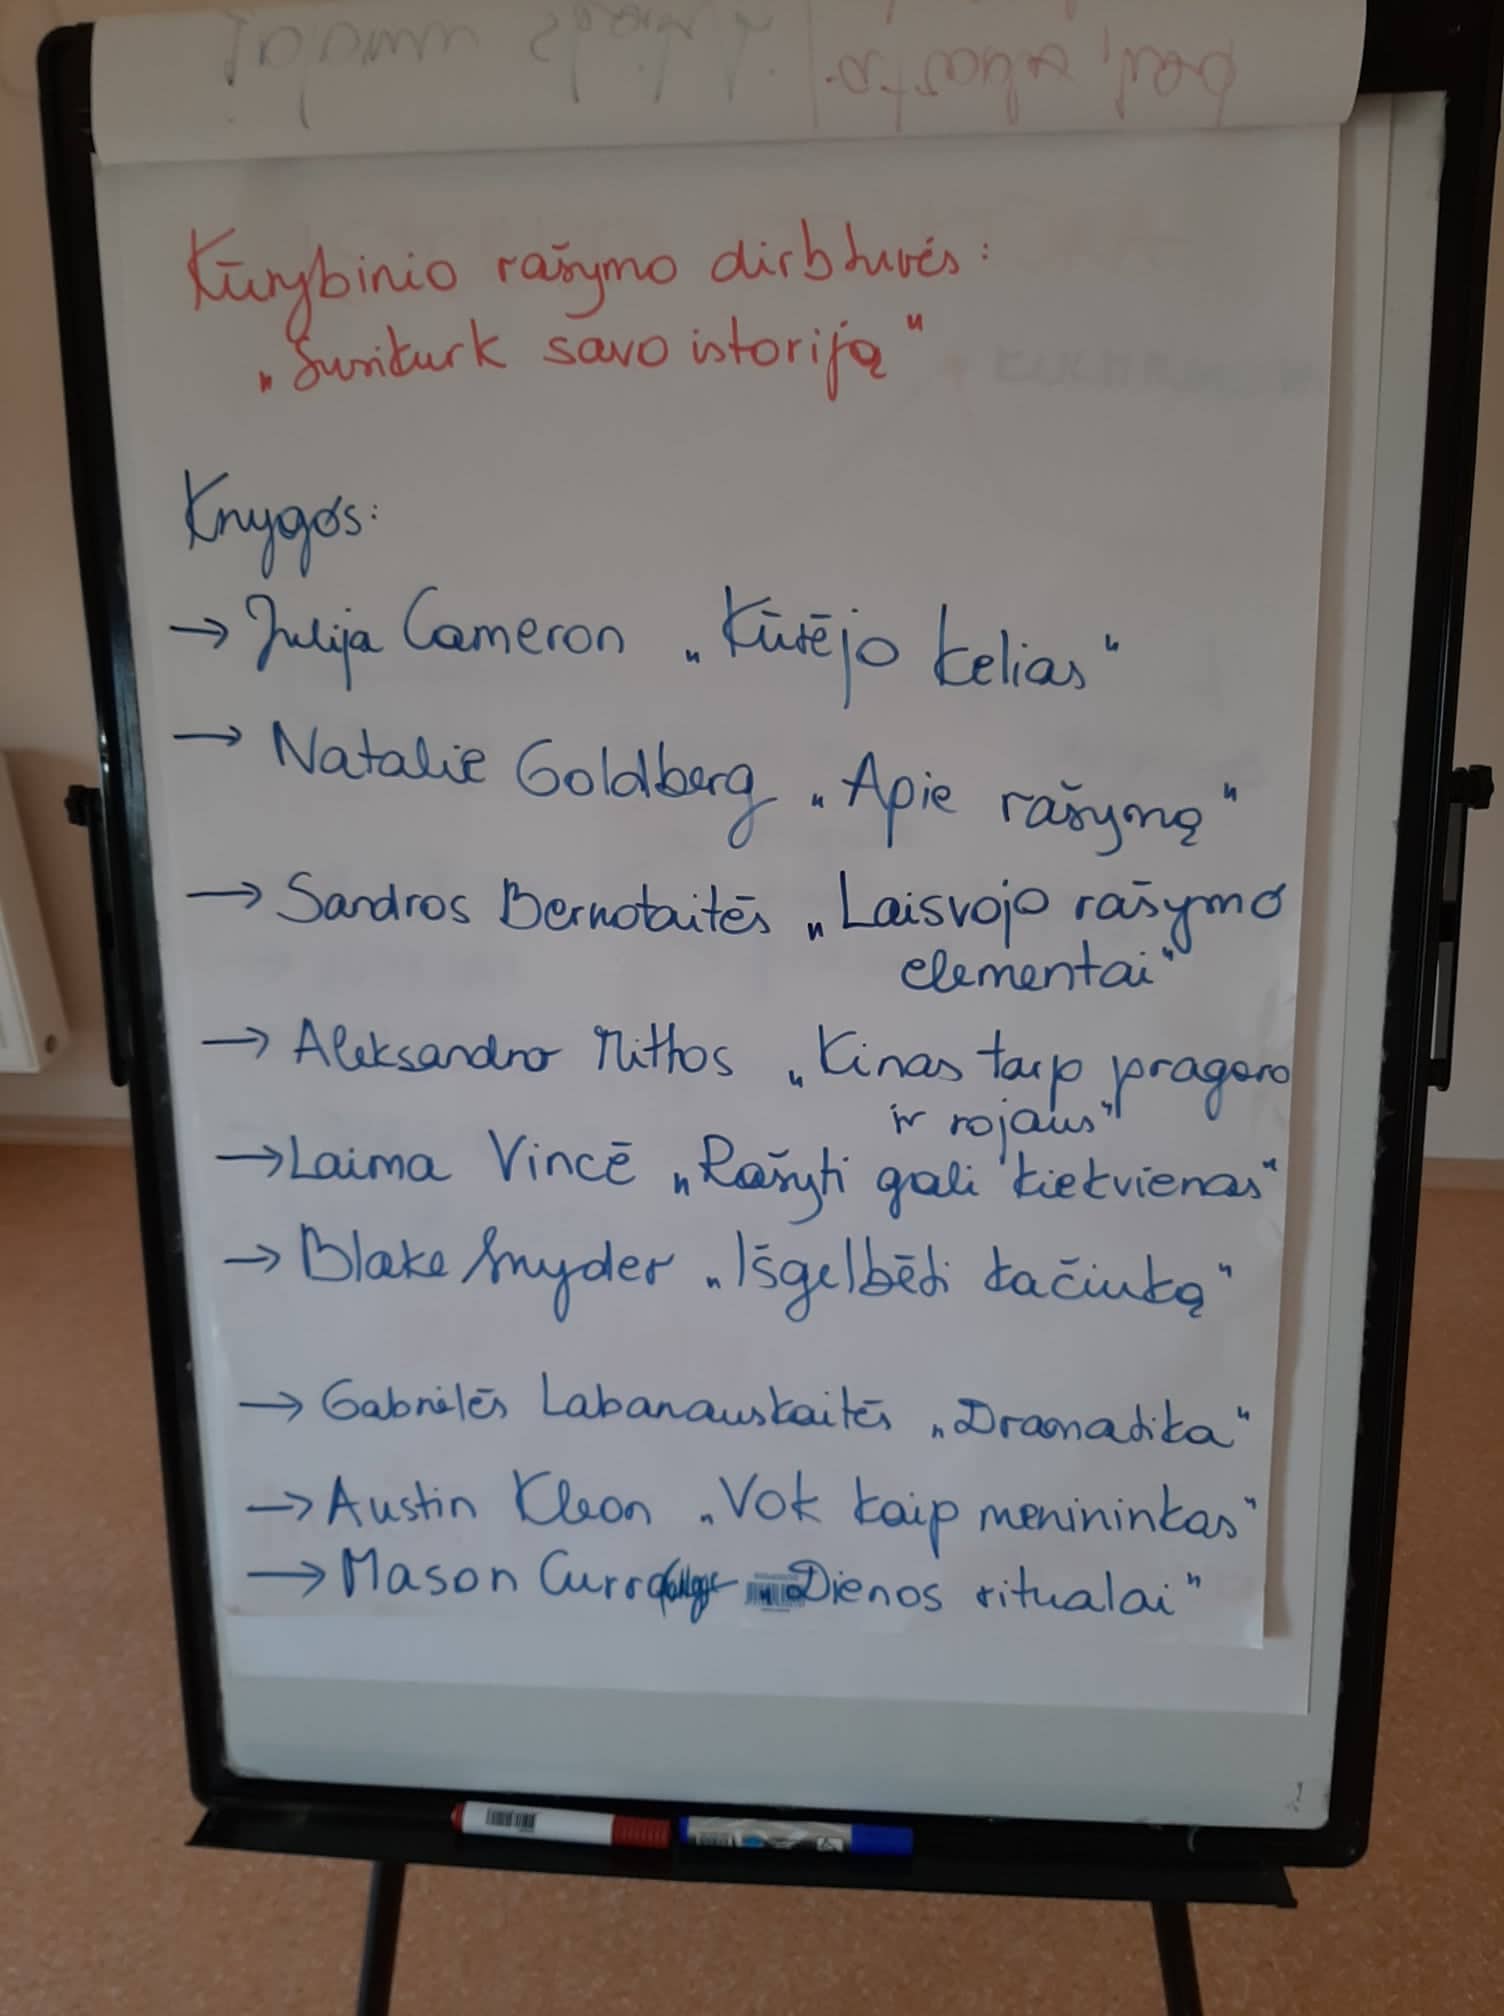 Kūrybinio rašymo dirbtuvės:
„Susikurk savo istoriją"
Knygos:
→ Julija Cameron „Kūrėjo kelias"
→ Natalie Goldberg „Apie rašymą"
→ Sandros Bernotaitės „Laisvojo rašymo
elementai"
→ Aleksandro Mittos „Kinas tarp pragaro
ir rojaus"
→ Laima Vincė „Rašyti gali kiekvienas"
→ Blake Snyder „Išgelbėti kačiuką"
→ Gabrielės Labanauskaitės „Dramatika"
→ Austin Kleon „Vok kaip menininkas"
→ Mason „Dienos ritualai"